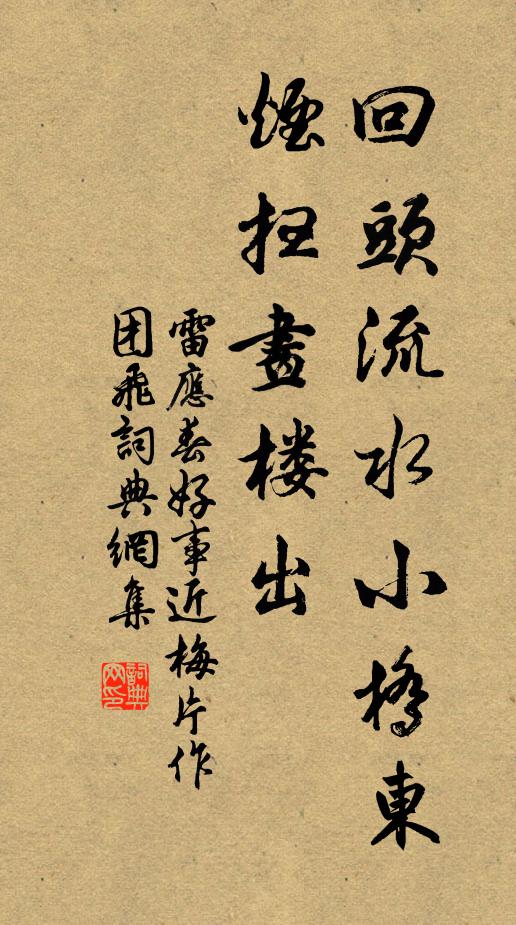 回頭流水小橋東
煙扫畫楼出
雷應春好事近梅片作
团飛詞典網集
詞典网印